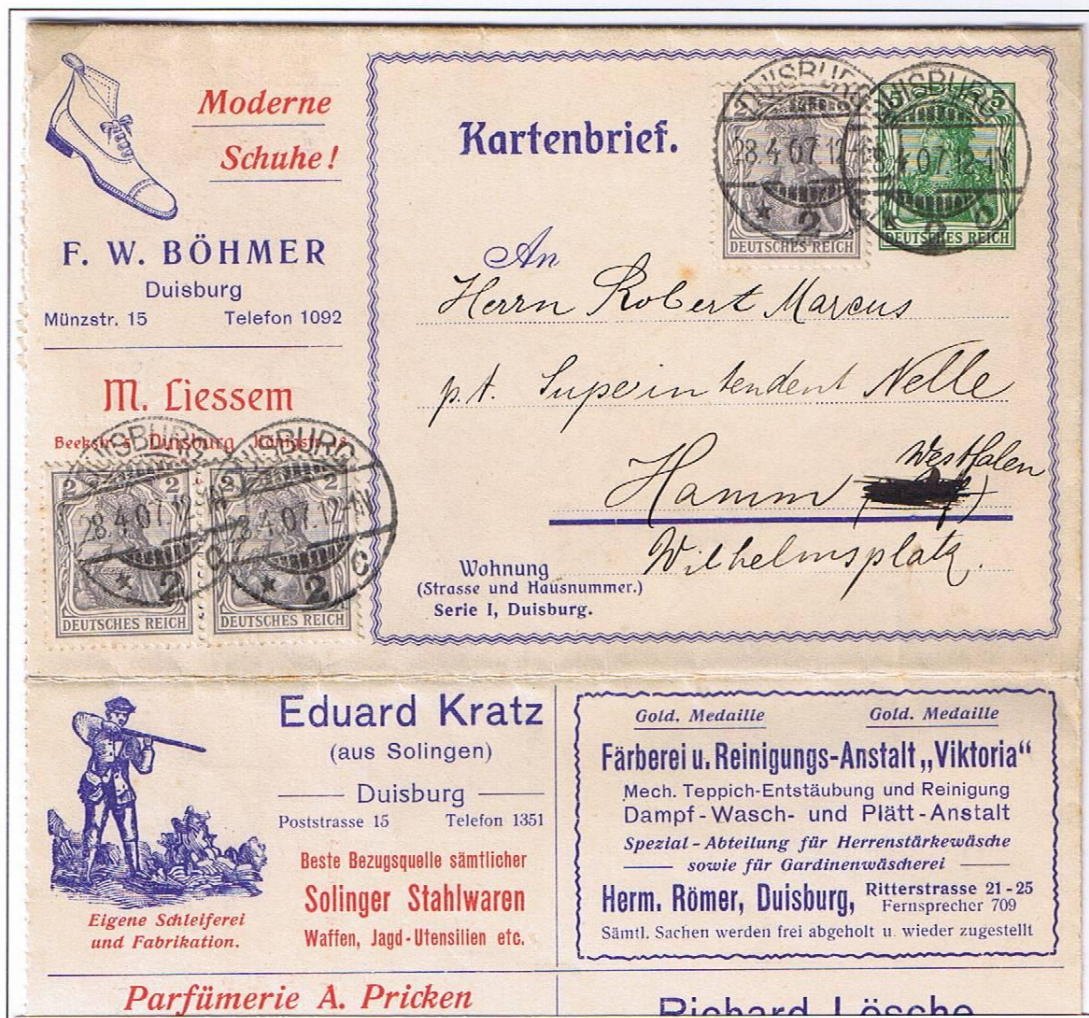 Moderne
Schuhe!
F. W. BÖHMER
Duisburg
Münzstr. 15 Telefon 1092
M. Liessem
Duisburg
DUISBURG
28.4.07.12-1N
* 2 C
DUISBURG
28.4.07.12-1N
* 2 C
2 2
DEUTSCHES REICH
2 2
DEUTSCHES REICH
Kartenbrief.
DUISBURG
28.4.07.12-1N
* 2 C
DUISBURG
28.4.07.12-1N
* 2 C
2
DEUTSCHES REICH
5
DEUTSCHES REICH
An
Herrn Robert Marcus
p.t. Superintendent Nelle
Hamm Westfalen
Wilhelmsplatz.
Wohnung
(Strasse und Hausnummer.)
Serie I, Duisburg.
Eduard Kratz
(aus Solingen)
Duisburg
Poststrasse 15 Telefon 1351
Beste Bezugsquelle sämtlicher
Solinger Stahlwaren
Waffen, Jagd-Utensilien etc.
Eigene Schleiferei
und Fabrikation.
Gold. Medaille Gold. Medaille
Färberei u. Reinigungs-Anstalt „Viktoria“
Mech. Teppich-Entstäubung und Reinigung
Dampf-Wasch- und Plätt-Anstalt
Spezial-Abteilung für Herrenstärkewäsche
sowie für Gardinenwäscherei
Herm. Römer, Duisburg, Ritterstrasse 21-25
Fernsprecher 709
Sämtl. Sachen werden frei abgeholt u. wieder zugestellt
Parfümerie A. Pricken
Richard Lösche